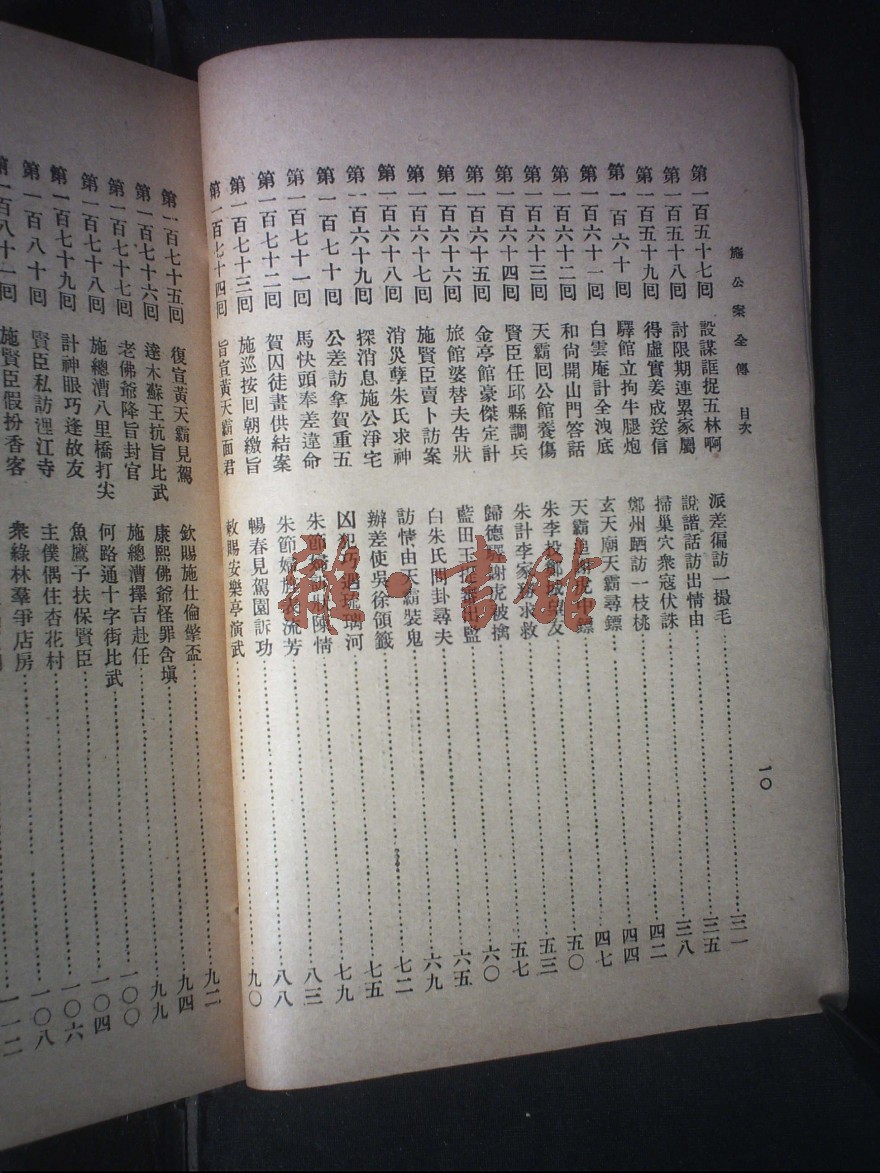 施公案全傳 目次 一〇
第一百五十七回 設謀誆捉五林啊 派差徧訪一撮毛 三一
第一百五十八回 討限期連累家屬 說諧話訪出情由 三五
第一百五十九回 得虛實姜成送信 掃巢穴衆寇伏誅 三八
第一百六十回 驛館立拘牛腿炮 鄭州晒訪一枝桃 四二
第一百六十一回 白雲庵計全洩底 玄天廟天霸尋鏢 四四
第一百六十二回 和尙開山門答話 天霸追謝虎中鏢 四七
第一百六十三回 天霸回公館養傷 朱李投鄭城與友 五〇
第一百六十四回 賢臣任邱縣調兵 朱計李家務求救 五三
第一百六十五回 金亭館豪傑定計 歸德驛謝虎被擒 五七
第一百六十六回 旅館婆替夫告狀 藍田玉從棄出監 六〇
第一百六十七回 施賢臣賣卜訪案 白朱氏問卦尋夫 六五
第一百六十八回 消災孽朱氏求神 訪情由天霸裝鬼 六九
第一百六十九回 探消息施公淨宅 辦差使吳徐領籤 七二
第一百七十回 公差訪拿賀重五 凶犯巧遇琉璃河 七五
第一百七十一回 馬快頭奉差違命 朱節婦訴狀陳情 七九
第一百七十二回 賀囚徒畫供結案 朱節婦旌表流芳 八三
第一百七十三回 施巡按回朝繳旨 暢春見駕園訴功 八八
第一百七十四回 旨宣黃天霸面君 敕賜安樂亭演武 九〇
第一百七十五回 復宣黃天霸見駕 欽賜施仕倫擎盃 九二
第一百七十六回 達木蘇王抗旨比武 康熙佛爺怪罪含嗔 九四
第一百七十七回 老佛爺降旨封官 施總漕擇吉赴任 九九
第一百七十八回 施總漕八里橋打尖 何路通十字街比武 一〇〇
第一百七十九回 計神眼巧逢故友 魚鷹子扶保賢臣 一〇四
第一百八十回 賢臣私訪浬江寺 主僕偶住杏花村 一〇六
第一百八十一回 施賢臣假扮香客 衆綠林羣爭店房 一〇八
一一二